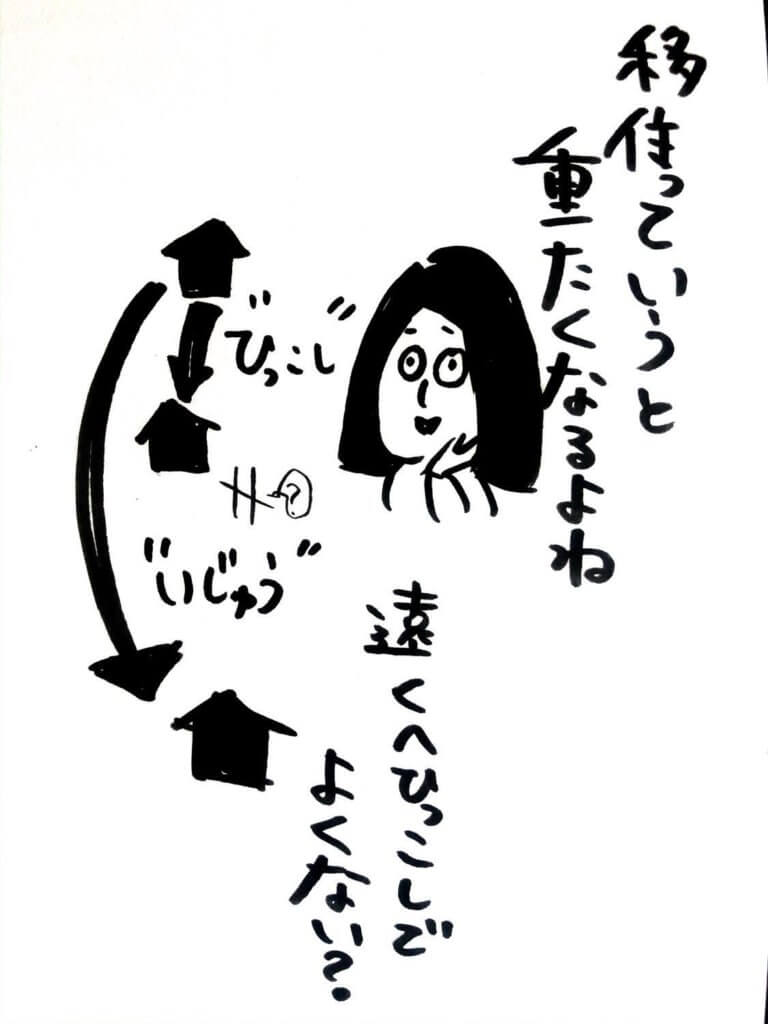 移住っていうと
重たくなるよね
"ひっこし"
"いじゅう"
遠くへひっこしで
よくない?